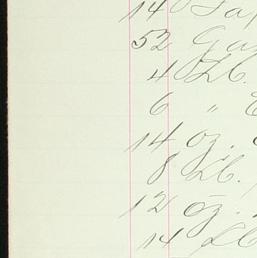 14
52 Ga
4 Lb.
6 "
14 oz.
8 Lb.
12 oz.
14 Lb